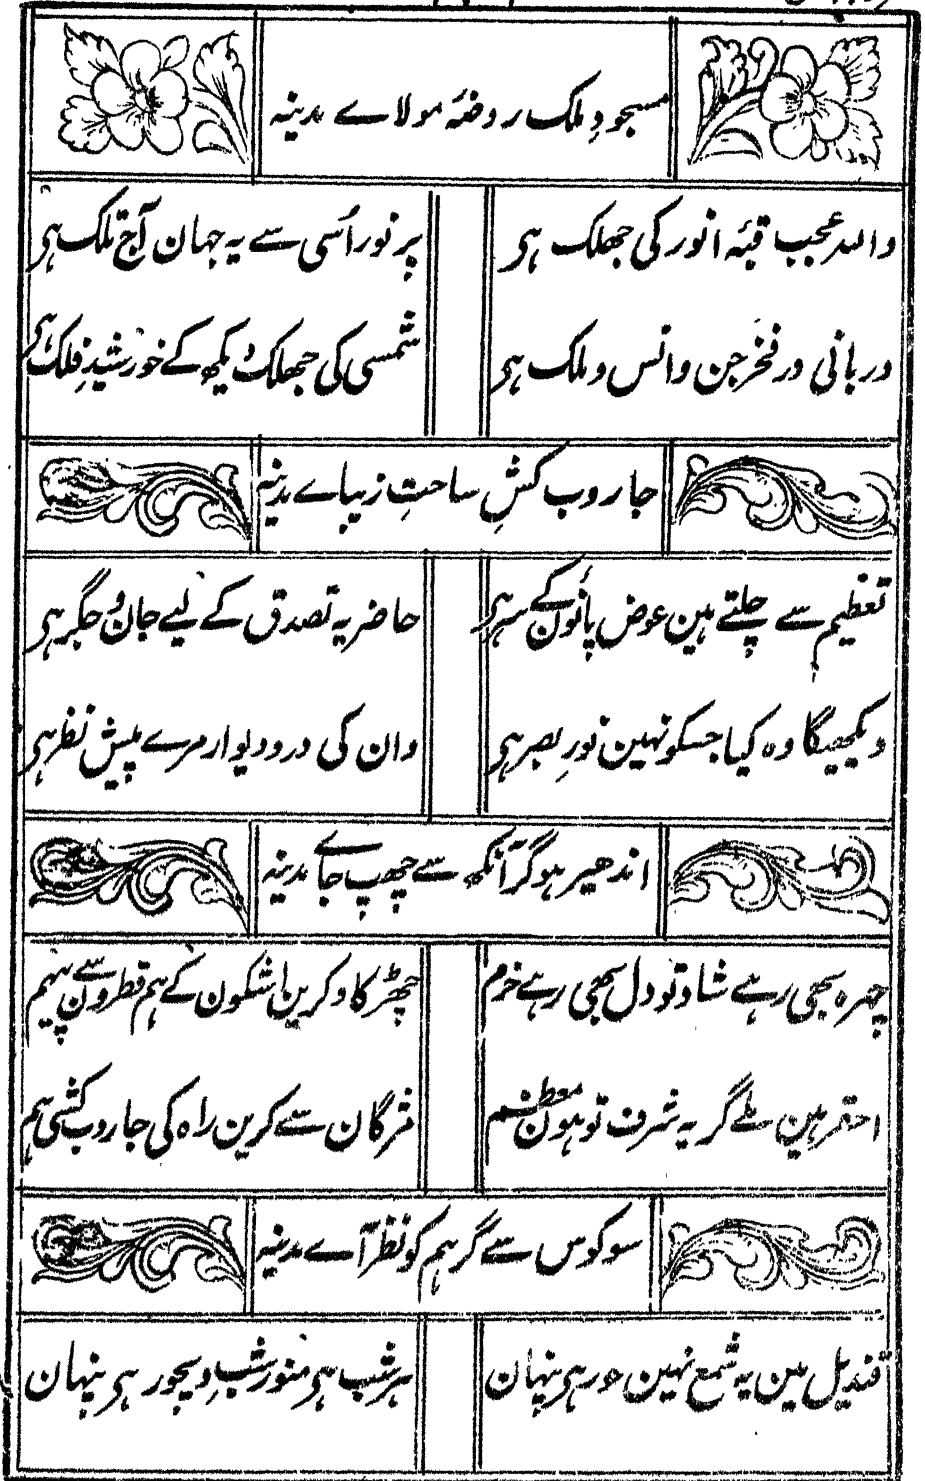 مسجودِ ملک روضۂ مولاے مدینہ
واللہ عجب قبۂ انور کی جھلک ہی
پر نور اُسی سے یہ جہان آج تلک ہی
دربانی در فخرِ جن و انس و ملک ہی
شمسی کی جھلک دیکھ کے خورشیدِ فلک ہی
جاروب کشِ ساحتِ زیباے مدینہ
تعظیم سے چلتے ہین عوض پانؤن کے سر ہی
حاضر یہ تصدق کے لیے جان و جگر ہی
دیکھیگا وہ کیا جسکو نہین نورِ بصر ہی
وان کی در و دیوار مرے پیش نظر ہی
اندھیر ہو گر آنکھ سے چھپ جاے مدینہ
چہرہ بھی رہے شاد تو دل بھی رہے خرم
چھڑکاو کرین اشکون کے ہم قطرون سے پیہم
احقر ہین ملے گر یہ شرف تو ہون معظم
مژگان سے کرین راہ کی جاروب کشی ہم
سو کوس سے گر ہم کو نظر آے مدینہ
قندیل مین یہ شمع نہین حور ہی پنہان
ہر شب ہی منور شبِ دیجور ہی پنہان